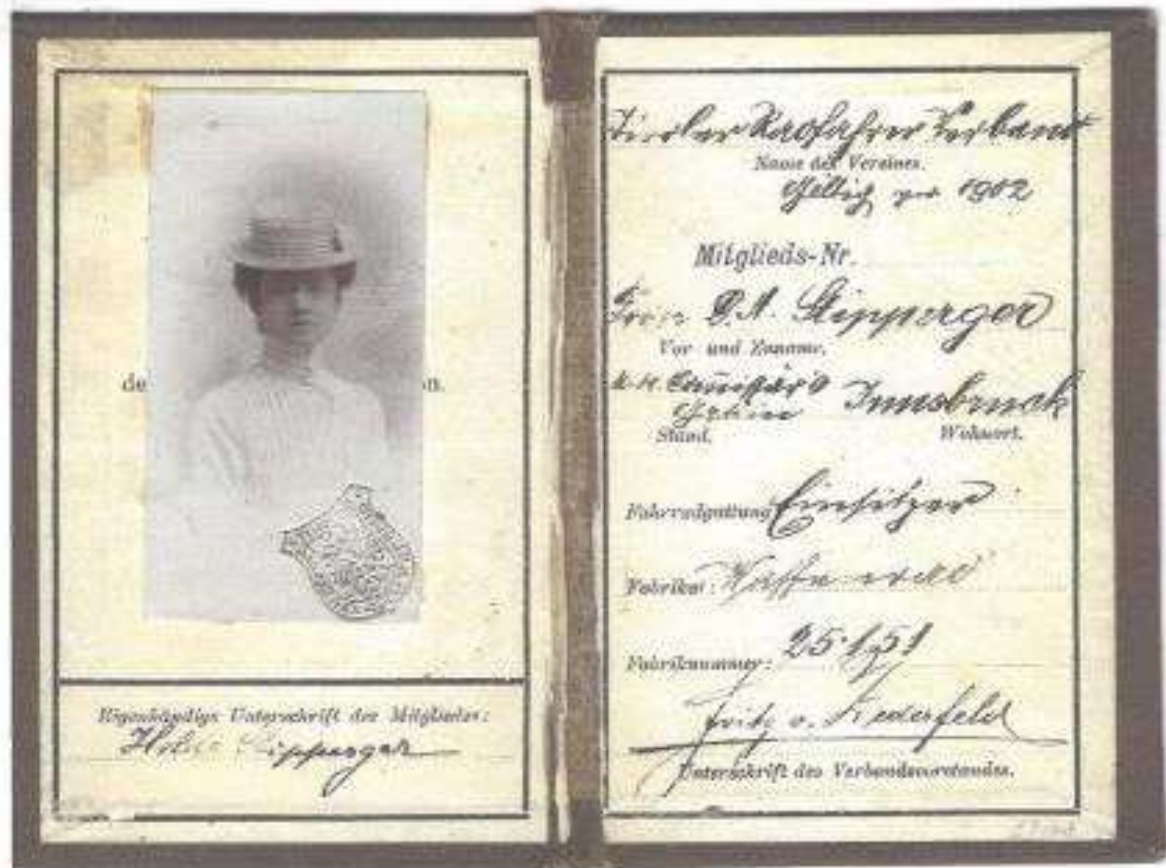 de on.
Eigenhändige Unterschrift des Mitgliedes:
Stipperger
Tiroler Radfahrer Verband
Name des Vereines.
Giltig pro 1902
Mitglieds-Nr.
Stipperger
Vor und Zuname.
Innsbruck
Stand. Wohnort.
Fahrradgattung Einsitzer
Fabrikat: Waffenrad
Fabriknummer:
Fritz v.
Unterschrift des Verbandsvorstandes.